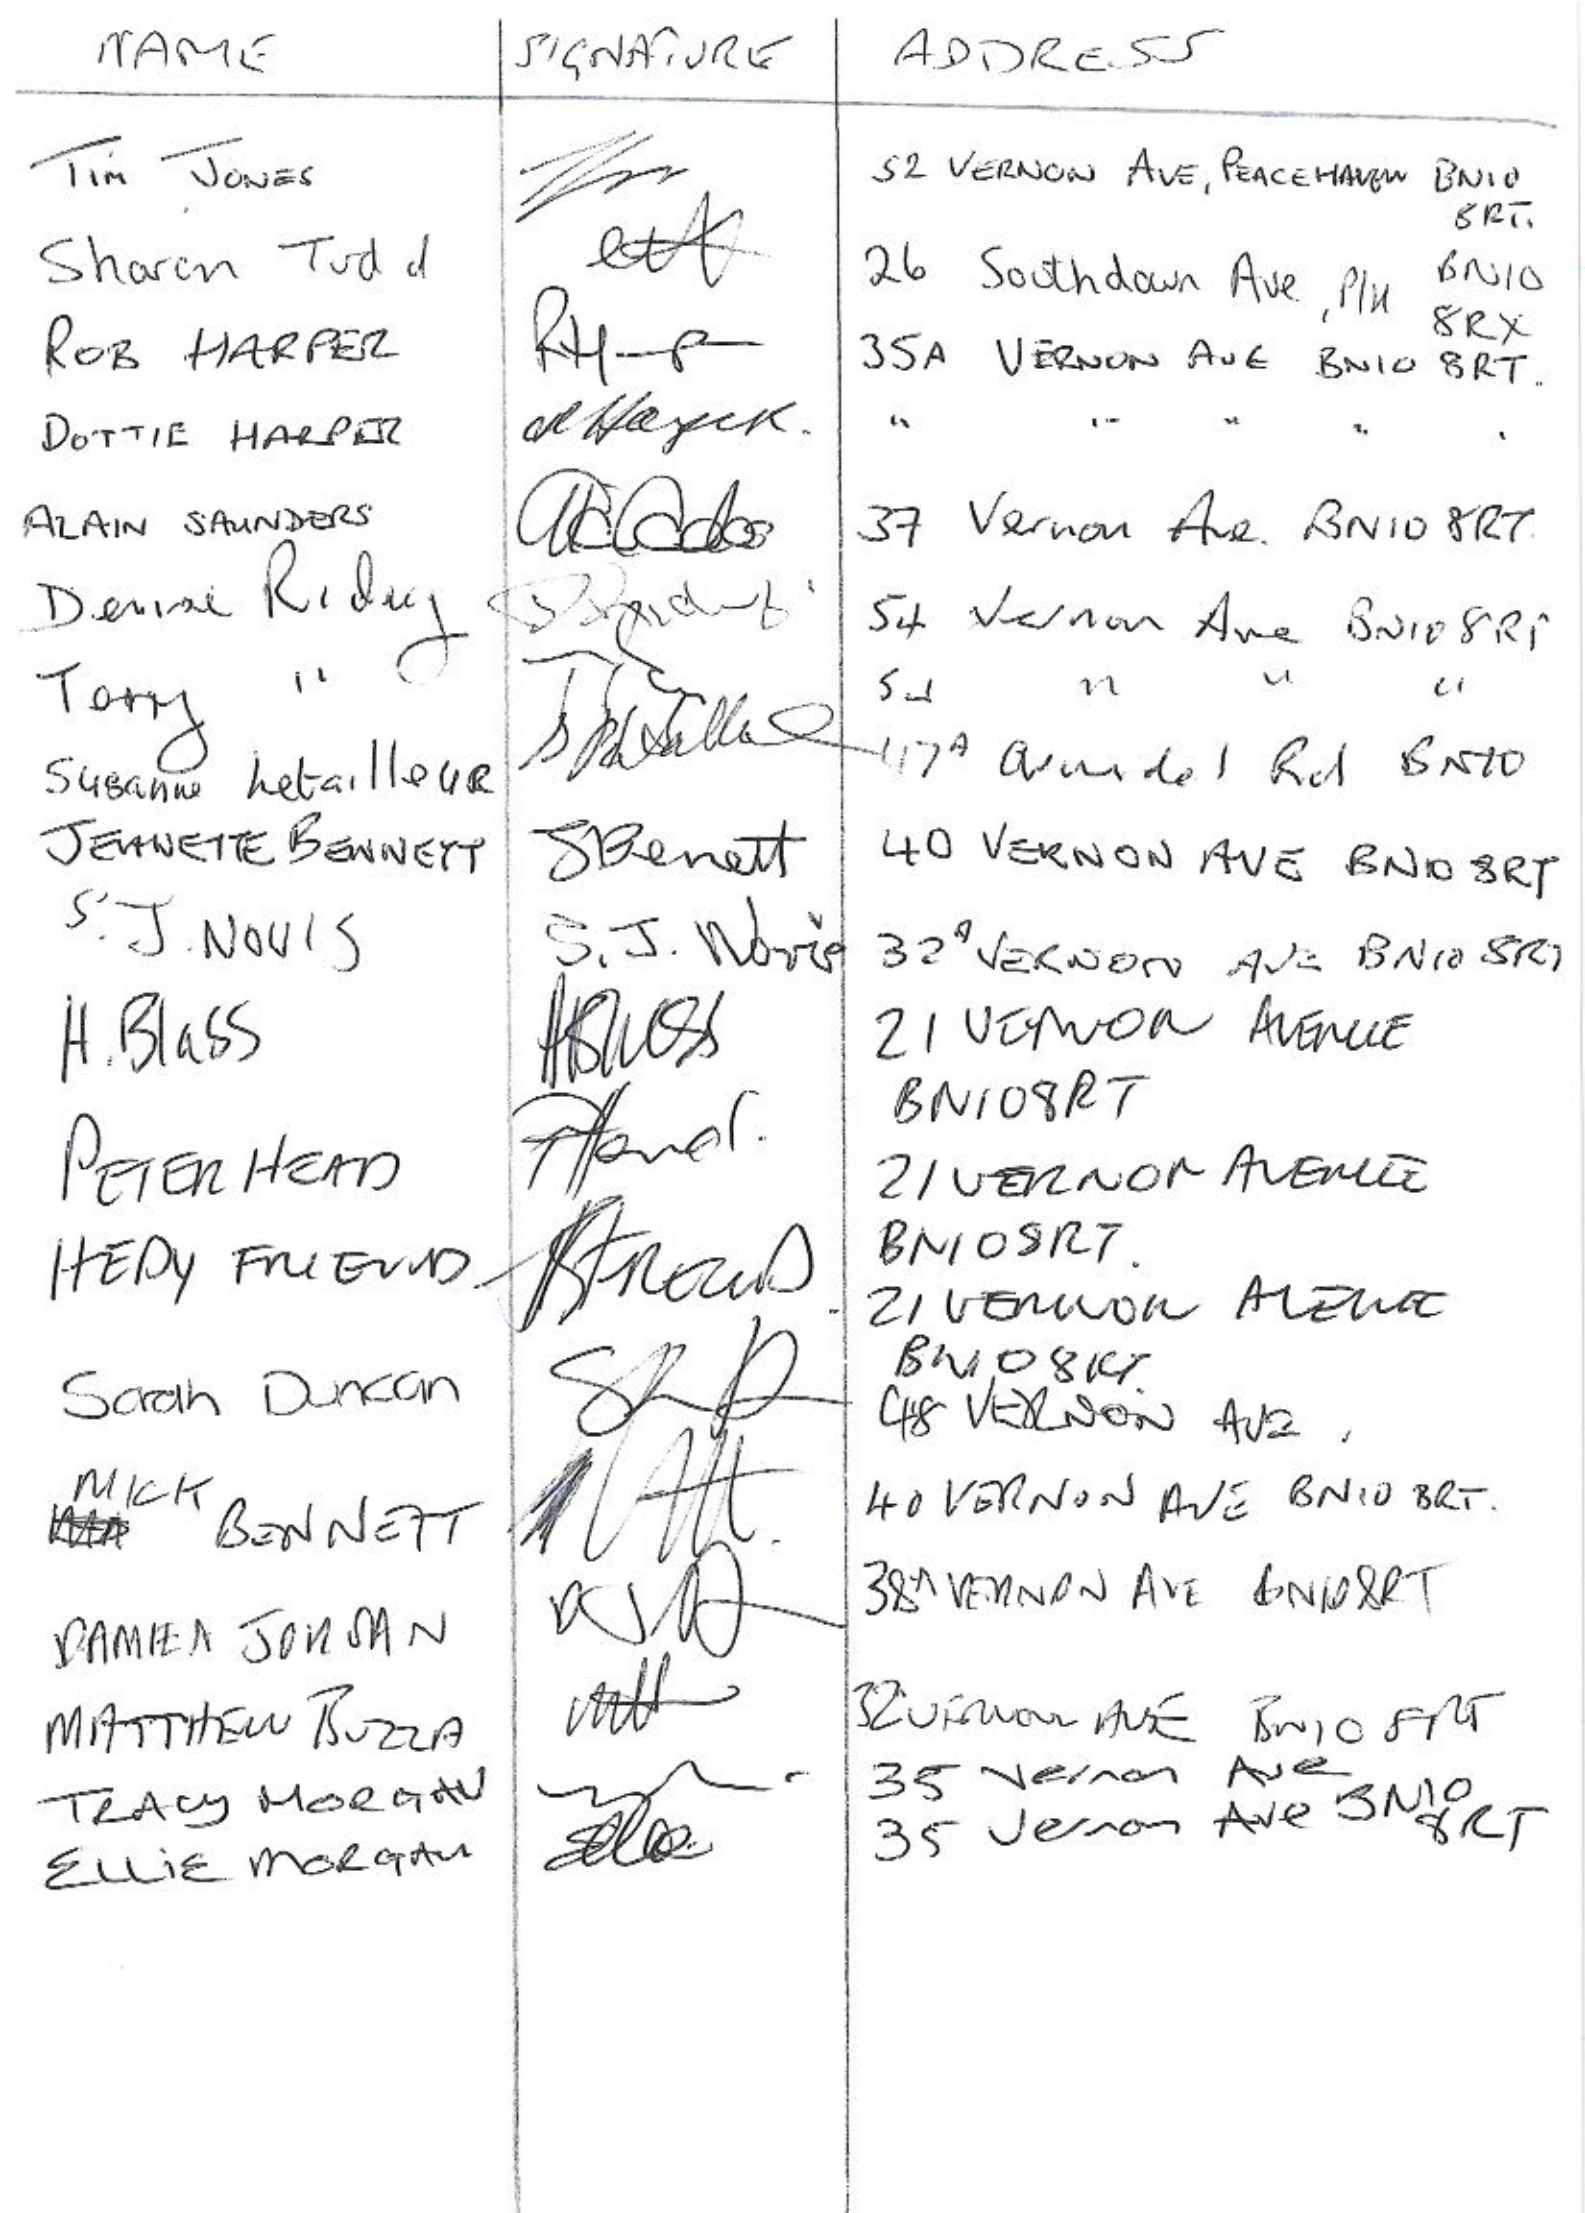 NAME SIGNATURE ADDRESS
Tim JONES 52 VERNON AVE, PEACEHAVEN BN10
8RT.
Sharon Tudd 26 Southdown Ave, P/H BN10
8RX
ROB HARPER 35A VERNON AVE BN10 8RT.
DOTTIE HARPER " " " " "
ALAIN SAUNDERS 37 Vernon Ave. BN10 8RT.
Denise 54 Vernon Ave BN10 8RT
Terry " 54 " " "
Susanne Letailleur 47A Arundel Rd BN10
JEANETTE BENNETT JBennett 40 VERNON AVE BN10 8RT
S.J. NOVIS S.J. Novis 32A VERNON AVE BN10 8RT
H. Blass 21 VERNON AVENUE
BN10 8RT
PETER HEAD 21 VERNON AVENUE
BN10 8RT.
HEDY FRIEND 21 VERNON AVENUE
BN10 8RT
Sarah Duncan 48 VERNON AVE.
MICK BENNETT 40 VERNON AVE BN10 8RT.
DAMIEN JORDAN 38A VERNON AVE BN10 8RT
MATTHEW BUZZA 32 VERNON AVE BN10 8RT
TRACY MORGAN 35 Vernon Ave
ELLIE MORGAN 35 Vernon Ave BN10
8RT